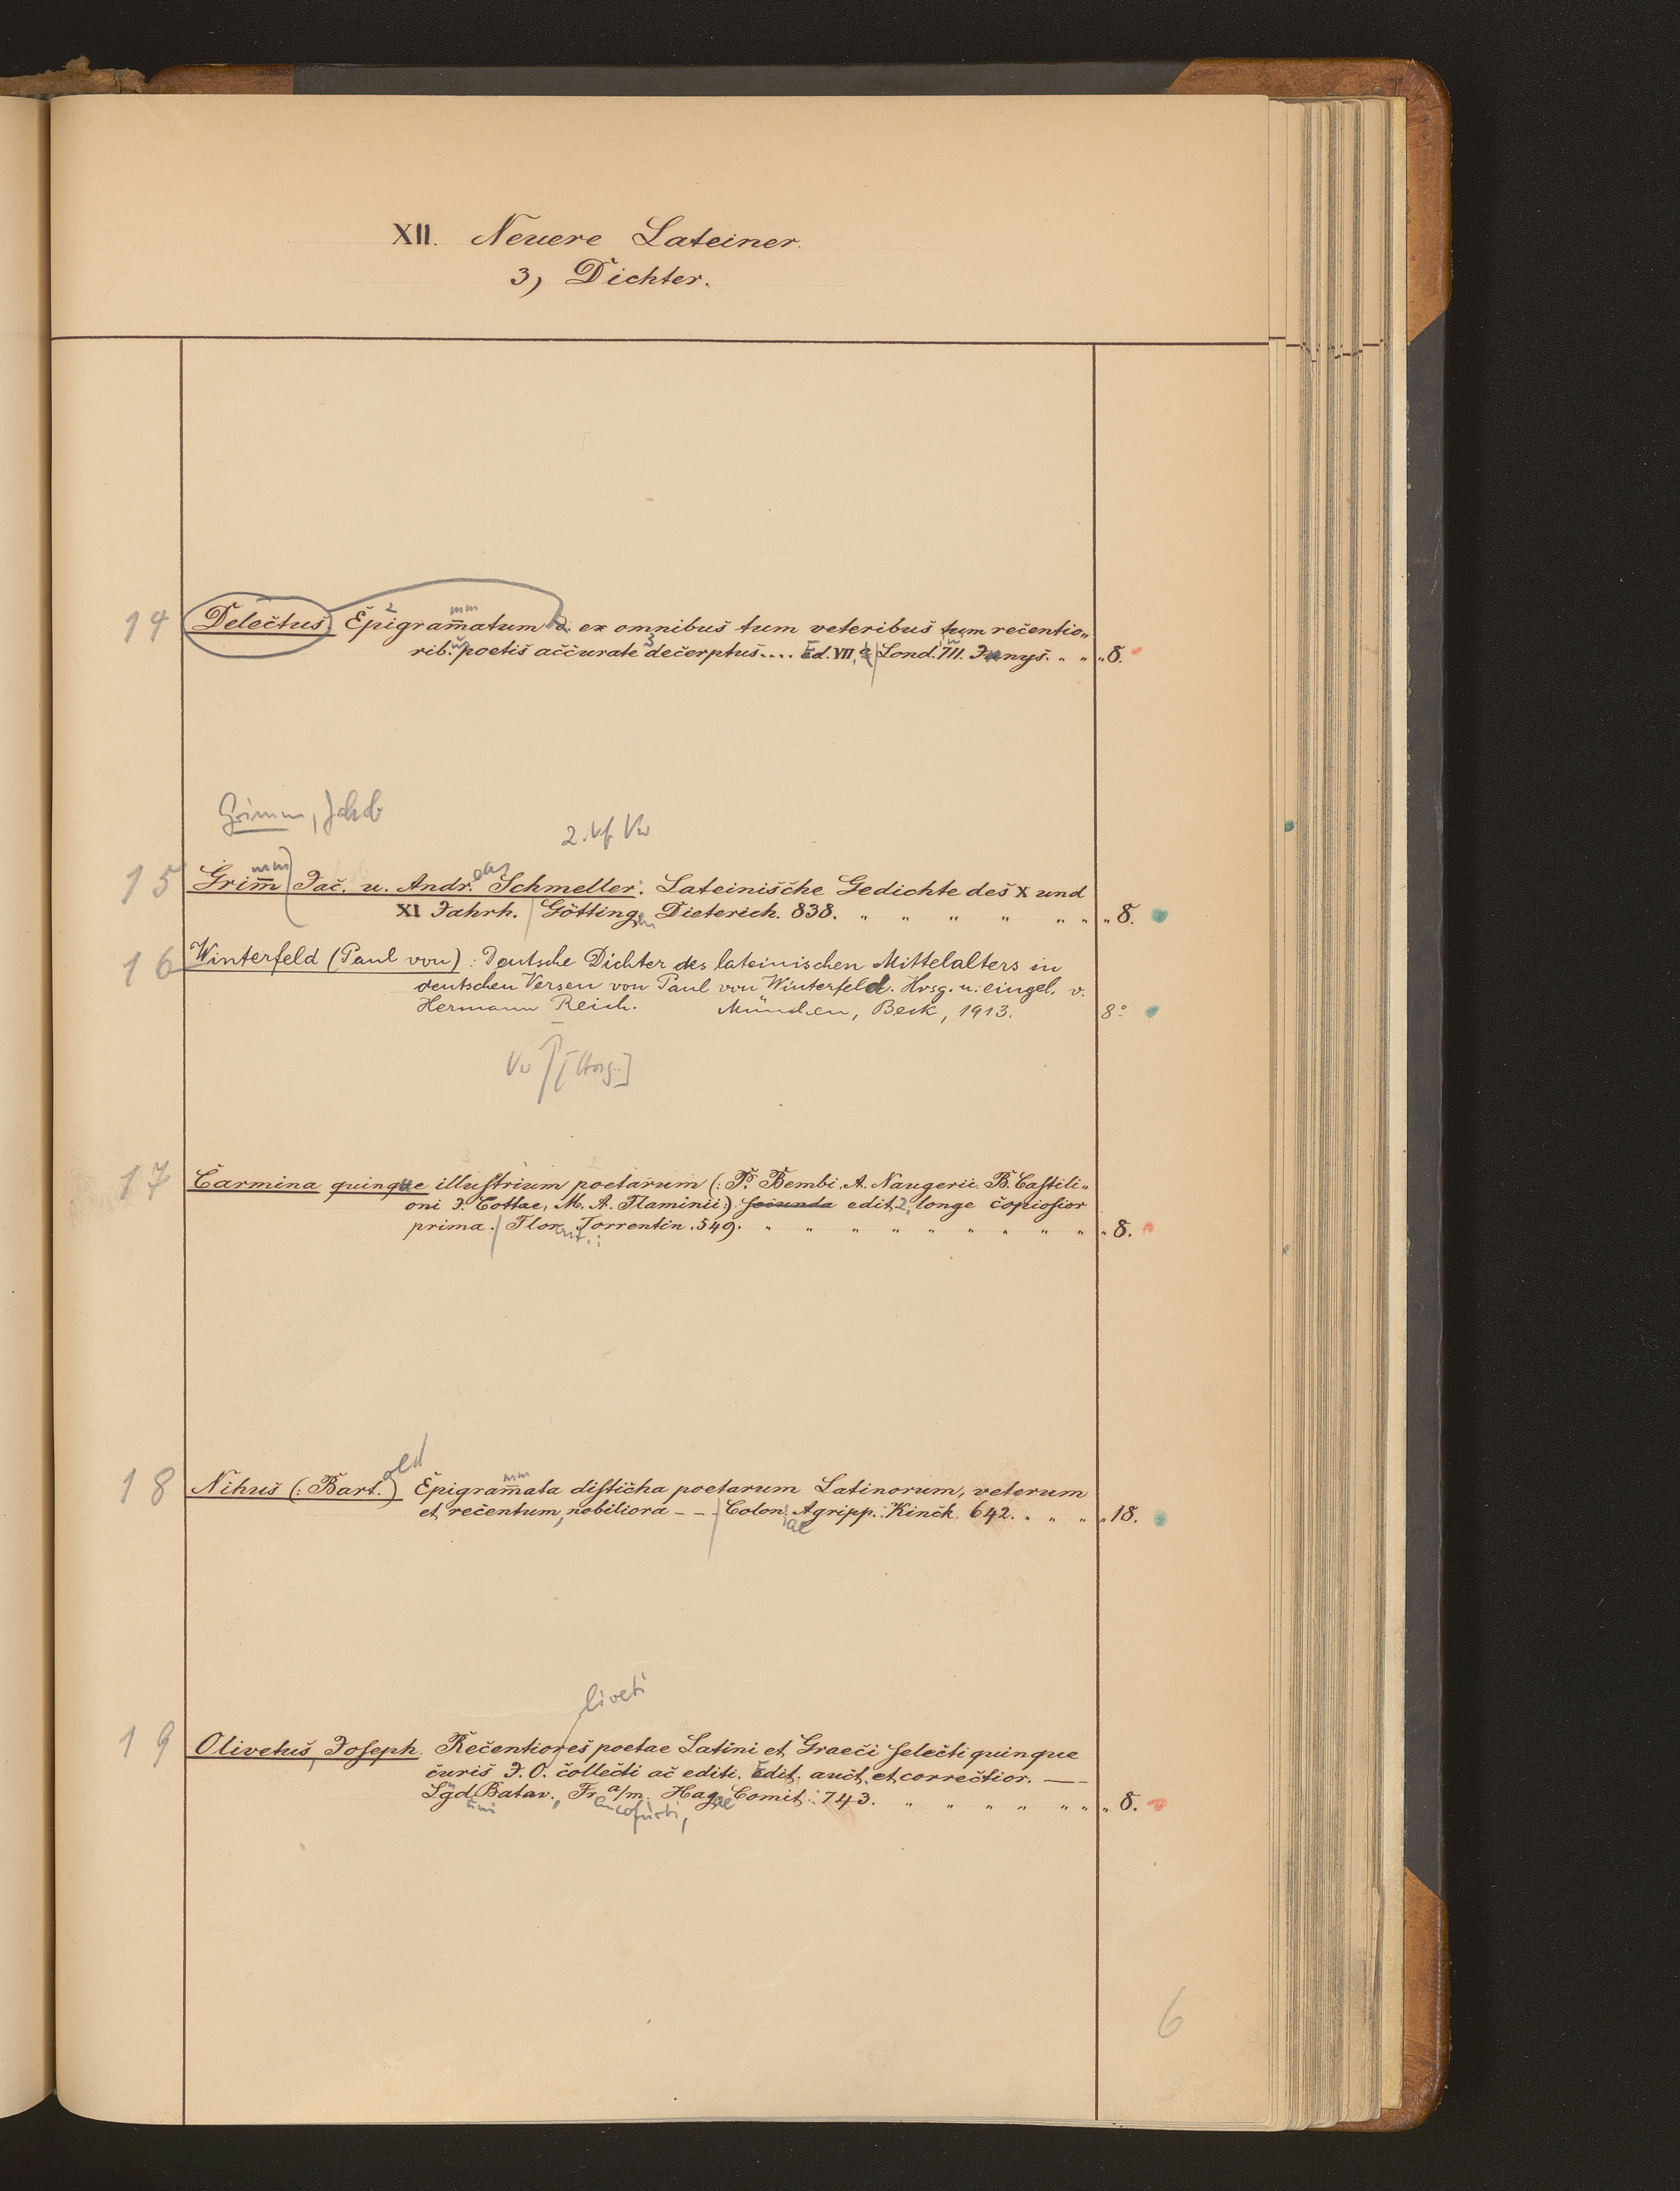 XII. Neuere Lateiner.
3) Dichter.
14 Delectus. Epigram̅atum ex omnibus tum veteribus tum recentio„
rib. poetis accurate decerptus.... Ed. VII, Lond. 711. „ „ „ 8.
Grimm, Jakob
2. Vf Vw
15 Grim̅ Jac. u. Andr. Schmeller: Lateinische Gedichte des X und
XI Jahrh. Götting. Dieterich. 838. „ „ „ „ „ „ „ 8.
16 Winterfeld (Paul von): Deutsche Dichter des lateinischen Mittelalters in
deutschen Versen von Paul von Winterfeld. Hrsg. u. eingel. v.
Hermann Reich. München, Beck, 1913. 8°
Vw [Hrsg.]
17 Carmina quinque illuſtrium poetarum (: P. Bembi, A. Naugerii. B. Caſtili„
oni J. Cottae, M. A. Flaminii:) secunda edit. 2, longe copioſior
prima. Flor. Torrentin. 549. „ „ „ „ „ „ „ „ „ „ 8.
old
18 Nihus (: Bart.) Epigram̅ata diſticha poetarum Latinorum, veterum
et recentum, nobiliora – – Colon. Agripp. Kinck. 642. „ „ „ „ 18.
iae
liveti
19 Olivetus, Joſeph. Recentiores poetae Latini et Graeci ſelecti quinque
curis J. O. collecti ac editi. Edit. auct. et correctior. —
Lgd. Batav., Fr. a/m. Hag. Comit. 743. „ „ „ „ „ „ „ 8.
6